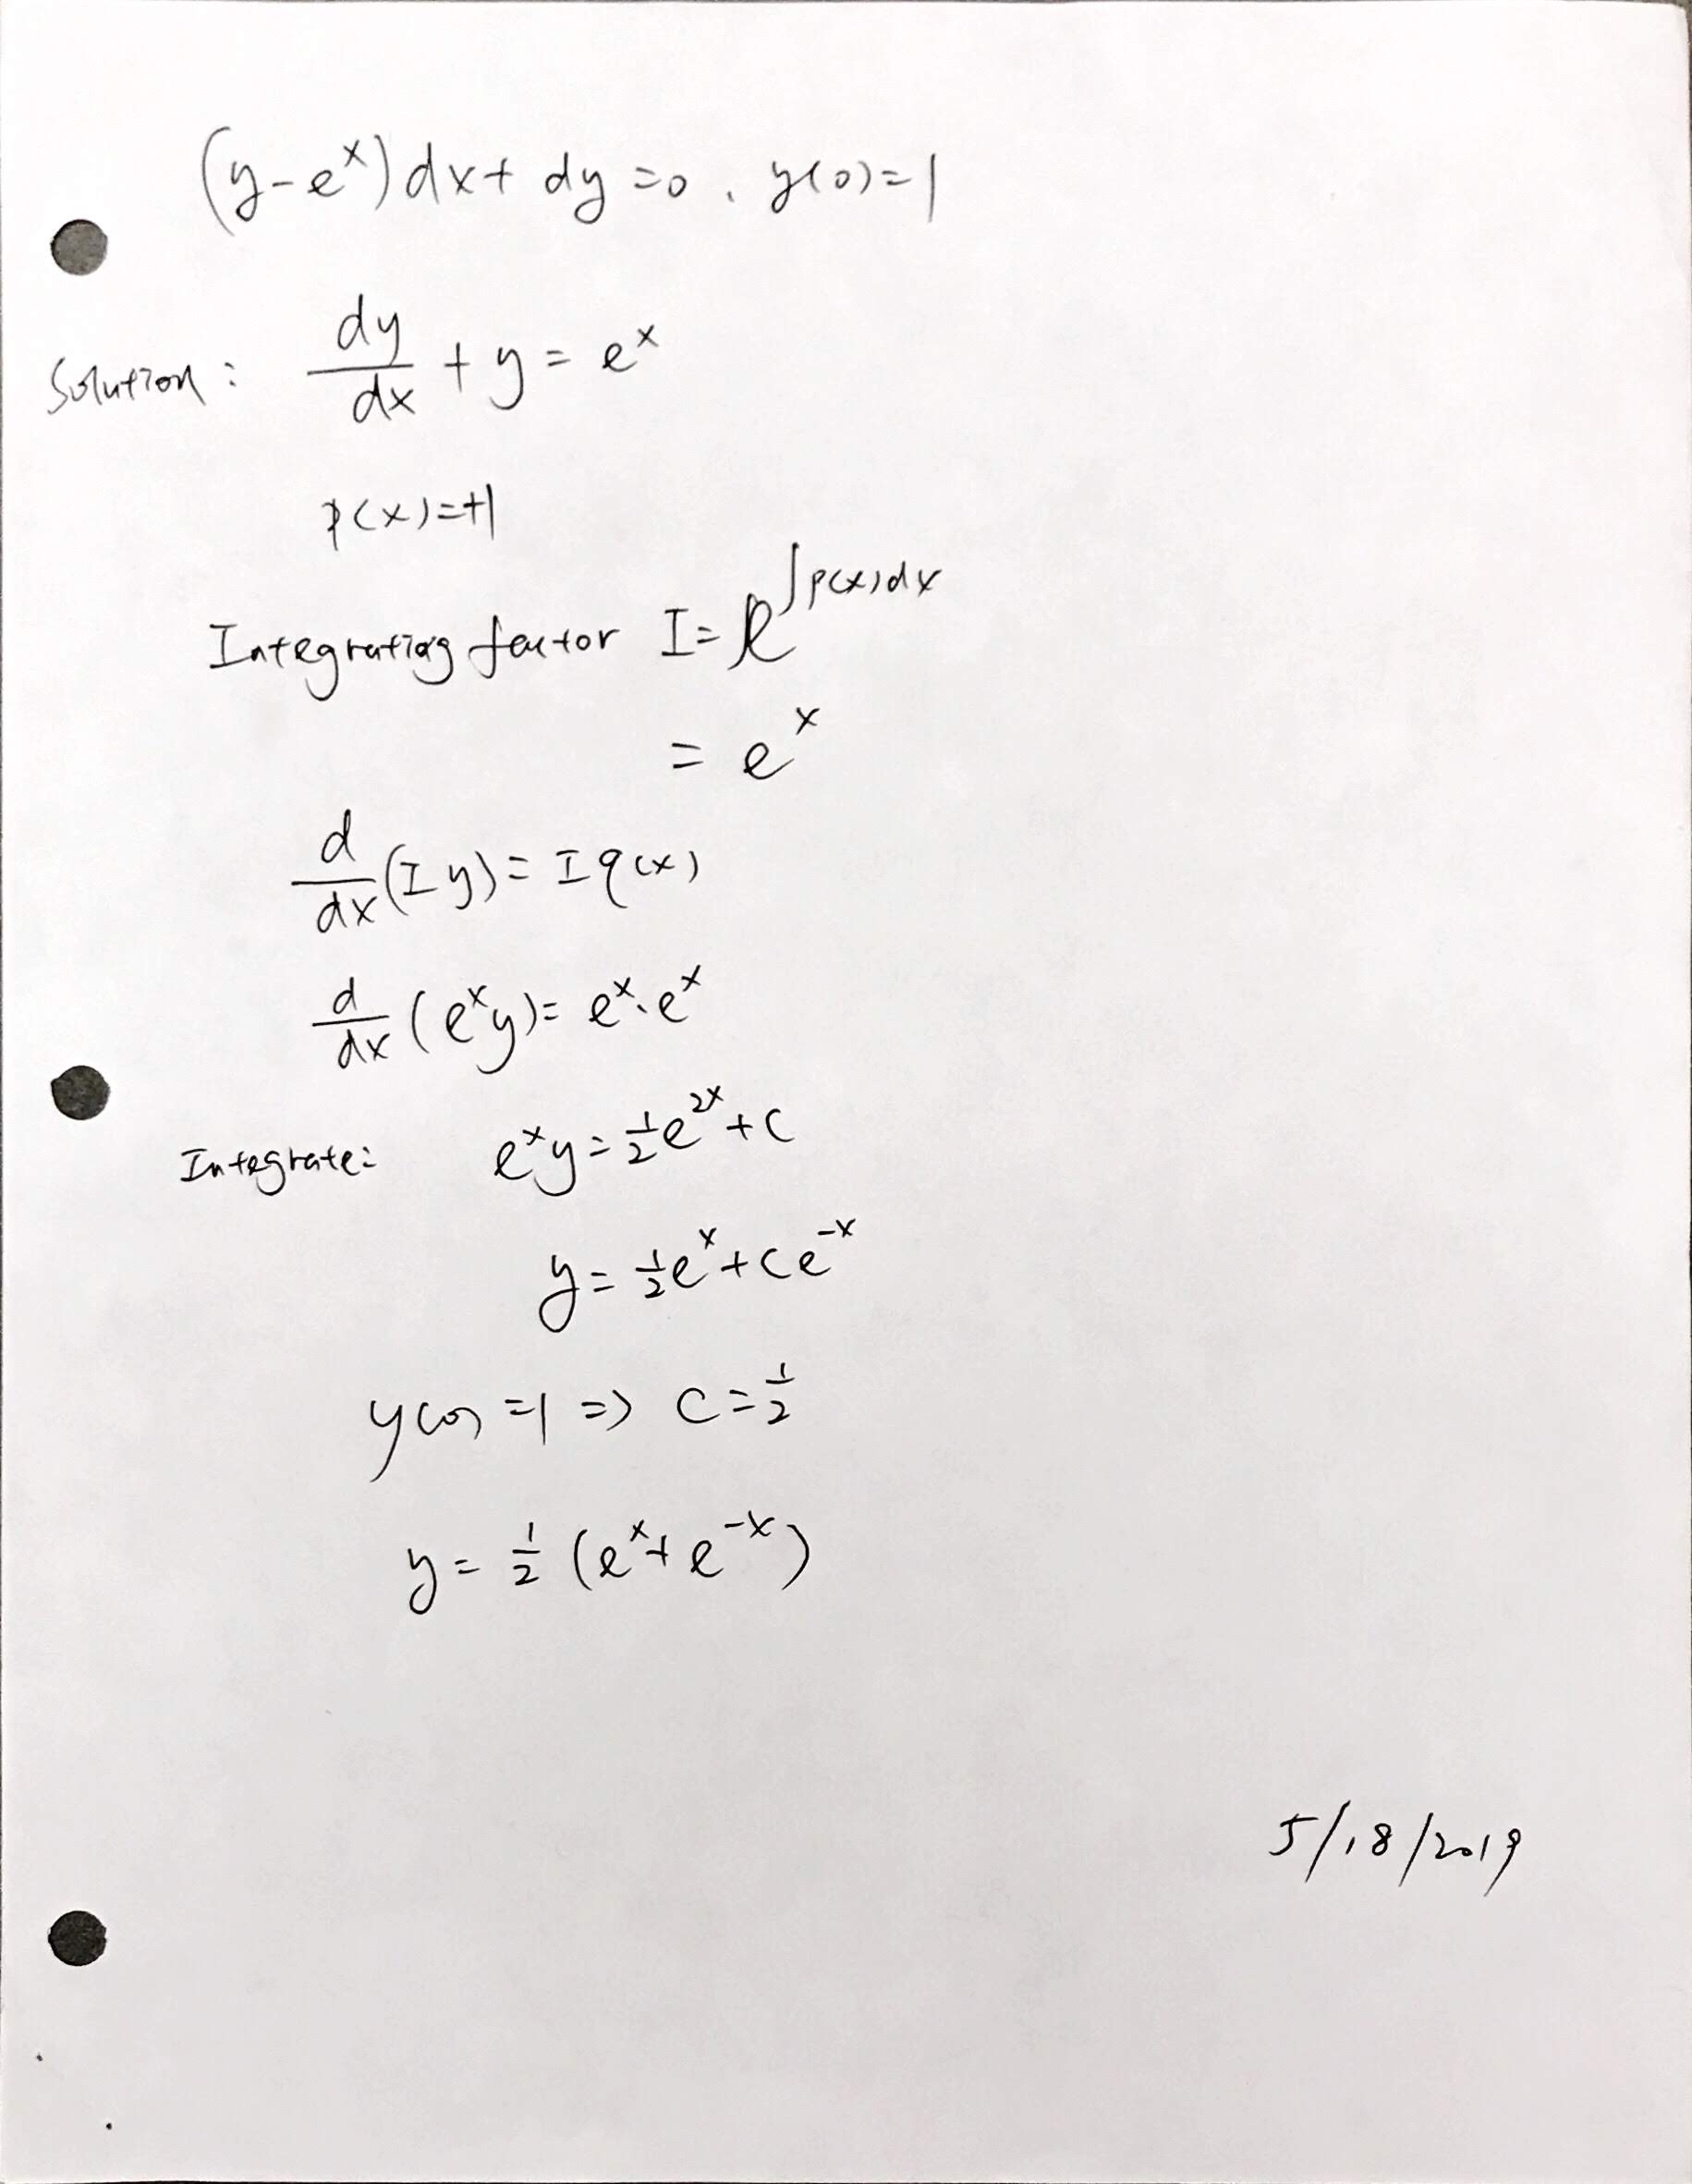 (y-e^x)dx+dy=0, y(0)=1
Solution: dy/dx + y = e^x
p(x)=+1
Integrating factor I=e^{∫p(x)dx}
= e^x
d/dx(Iy)=Iq(x)
d/dx(e^x y)=e^x·e^x
Integrate: e^x y=1/2 e^{2x}+c
y=1/2 e^x+ce^{-x}
y(0)=1 => c=1/2
y=1/2 (e^x+e^{-x})
5/18/2019